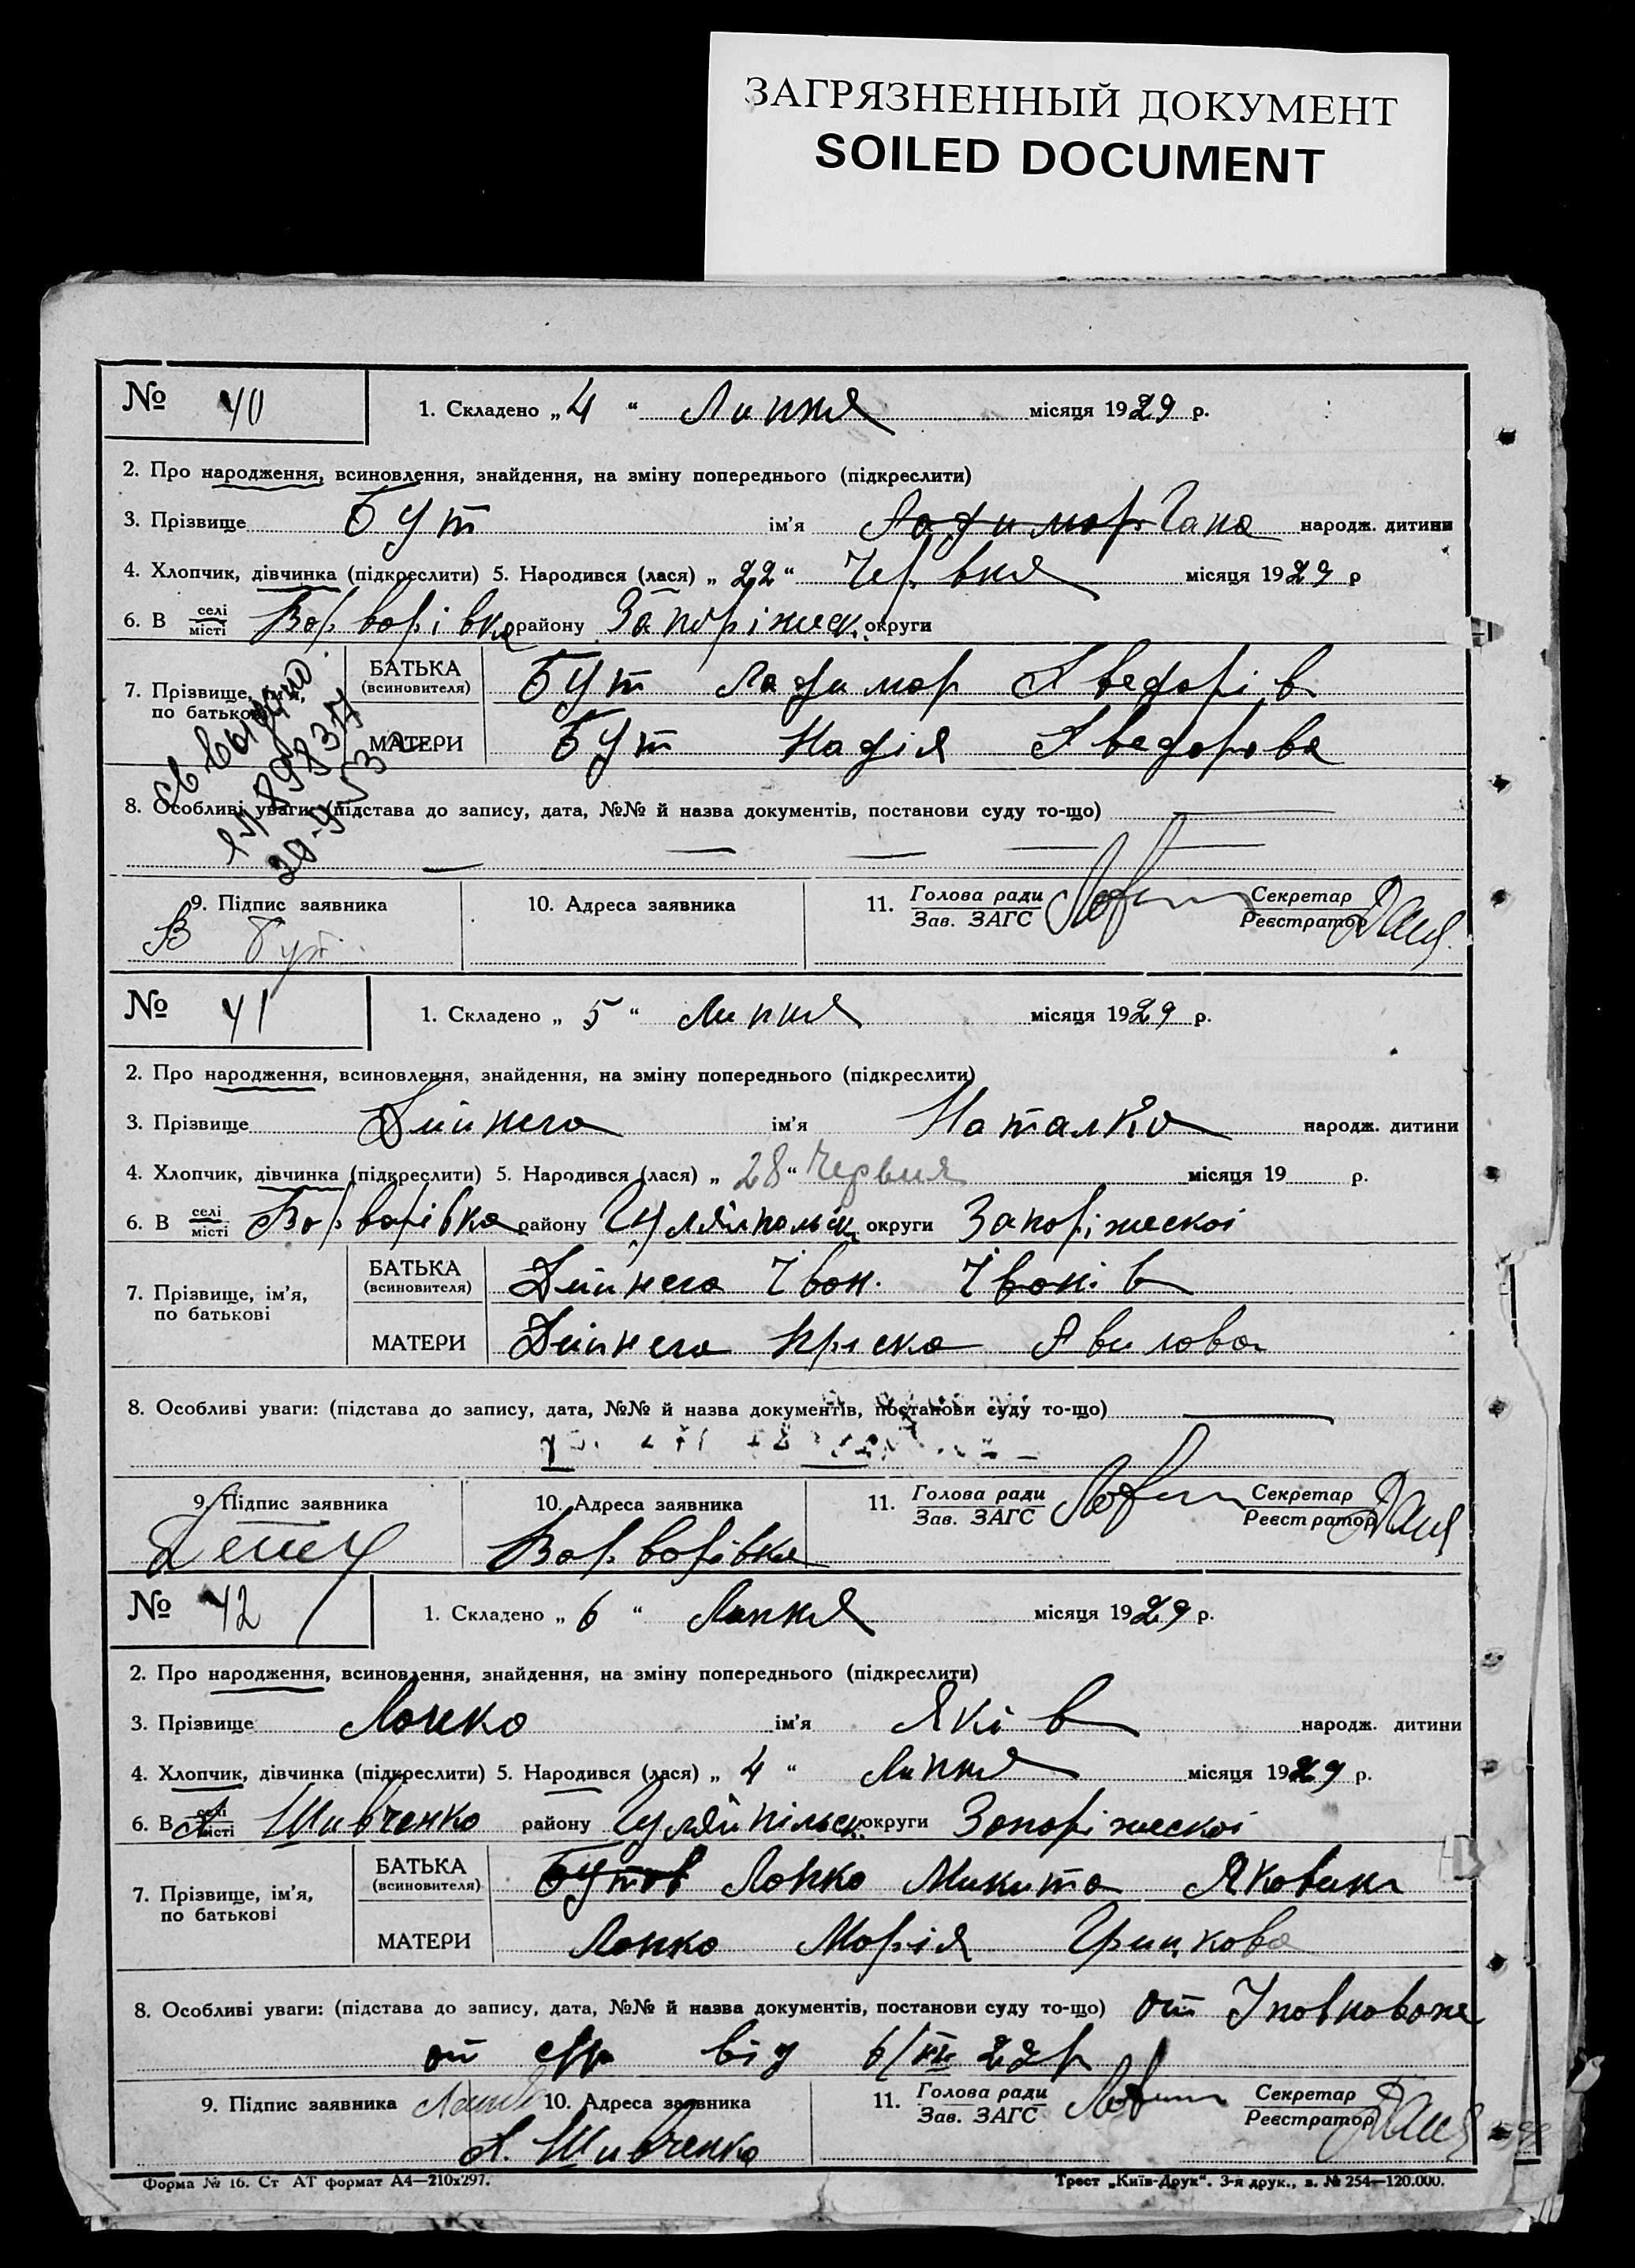 ЗАГРЯЗНЕННЫЙ ДОКУМЕНТ
SOILED DOCUMENT
№ 40 1. Складено „ 4 “ Липня місяця 1929 р.
2. Про народження, всиновлення, знайдення, на зміну попереднього (підкреслити)
3. Прізвище Бут ім'я Ладимор Гана народж. дитини
4. Хлопчик, дівчинка (підкреслити) 5. Народився (лася) „ 22 “ Червня місяця 1929 р
6. В селі Варворівка району Запоріжськ. округи
місті
7. Прізвище, ім'я, по батькові
БАТЬКА (всиновителя) Бут Ладимор Хведорів
МАТЕРИ Бут Надія Хведорова
8. Особливі уваги: (підстава до запису, дата, №№ й назва документів, постанови суду то-що)
9. Підпис заявника 10. Адреса заявника 11. Голова ради Секретар
Зав. ЗАГС Реєстратор
В Бут
№ 41 1. Складено „ 5 “ Липня місяця 1929 р.
2. Про народження, всиновлення, знайдення, на зміну попереднього (підкреслити)
3. Прізвище Дейнега ім'я Наталка народж. дитини
4. Хлопчик, дівчинка (підкреслити) 5. Народився (лася) „ 28 “ Червня місяця 19 р.
6. В селі Варворівка району Гуляйпольськ округи Запоріжської
місті
7. Прізвище, ім'я, по батькові
БАТЬКА (всиновителя) Дейнега Іван. Іванів
МАТЕРИ Дейнега Пріска
8. Особливі уваги: (підстава до запису, дата, №№ й назва документів, постанови суду то-що)
9. Підпис заявника 10. Адреса заявника 11. Голова ради Секретар
Зав. ЗАГС Реєстратор
Варворівка
№ 42 1. Складено „ 6 “ Липня місяця 1929 р.
2. Про народження, всиновлення, знайдення, на зміну попереднього (підкреслити)
3. Прізвище Лопко ім'я Яків народж. дитини
4. Хлопчик, дівчинка (підкреслити) 5. Народився (лася) „ 4 “ Липня місяця 1929 р.
6. В селі х Шивченко району Гуляйпільськ. округи Запоріжської
місті
7. Прізвище, ім'я, по батькові
БАТЬКА (всиновителя) Бутов Лопко Микита Яковин
МАТЕРИ Лопко Марія Грицкова
8. Особливі уваги: (підстава до запису, дата, №№ й назва документів, постанови суду то-що)
від
9. Підпис заявника 10. Адреса заявника 11. Голова ради Секретар
Зав. ЗАГС Реєстратор
Х. Шивченко
Форма № 16. Ст АТ формат А4—210х297. Трест „Київ-Друк“. 3-я друк., з. № 254—120.000.